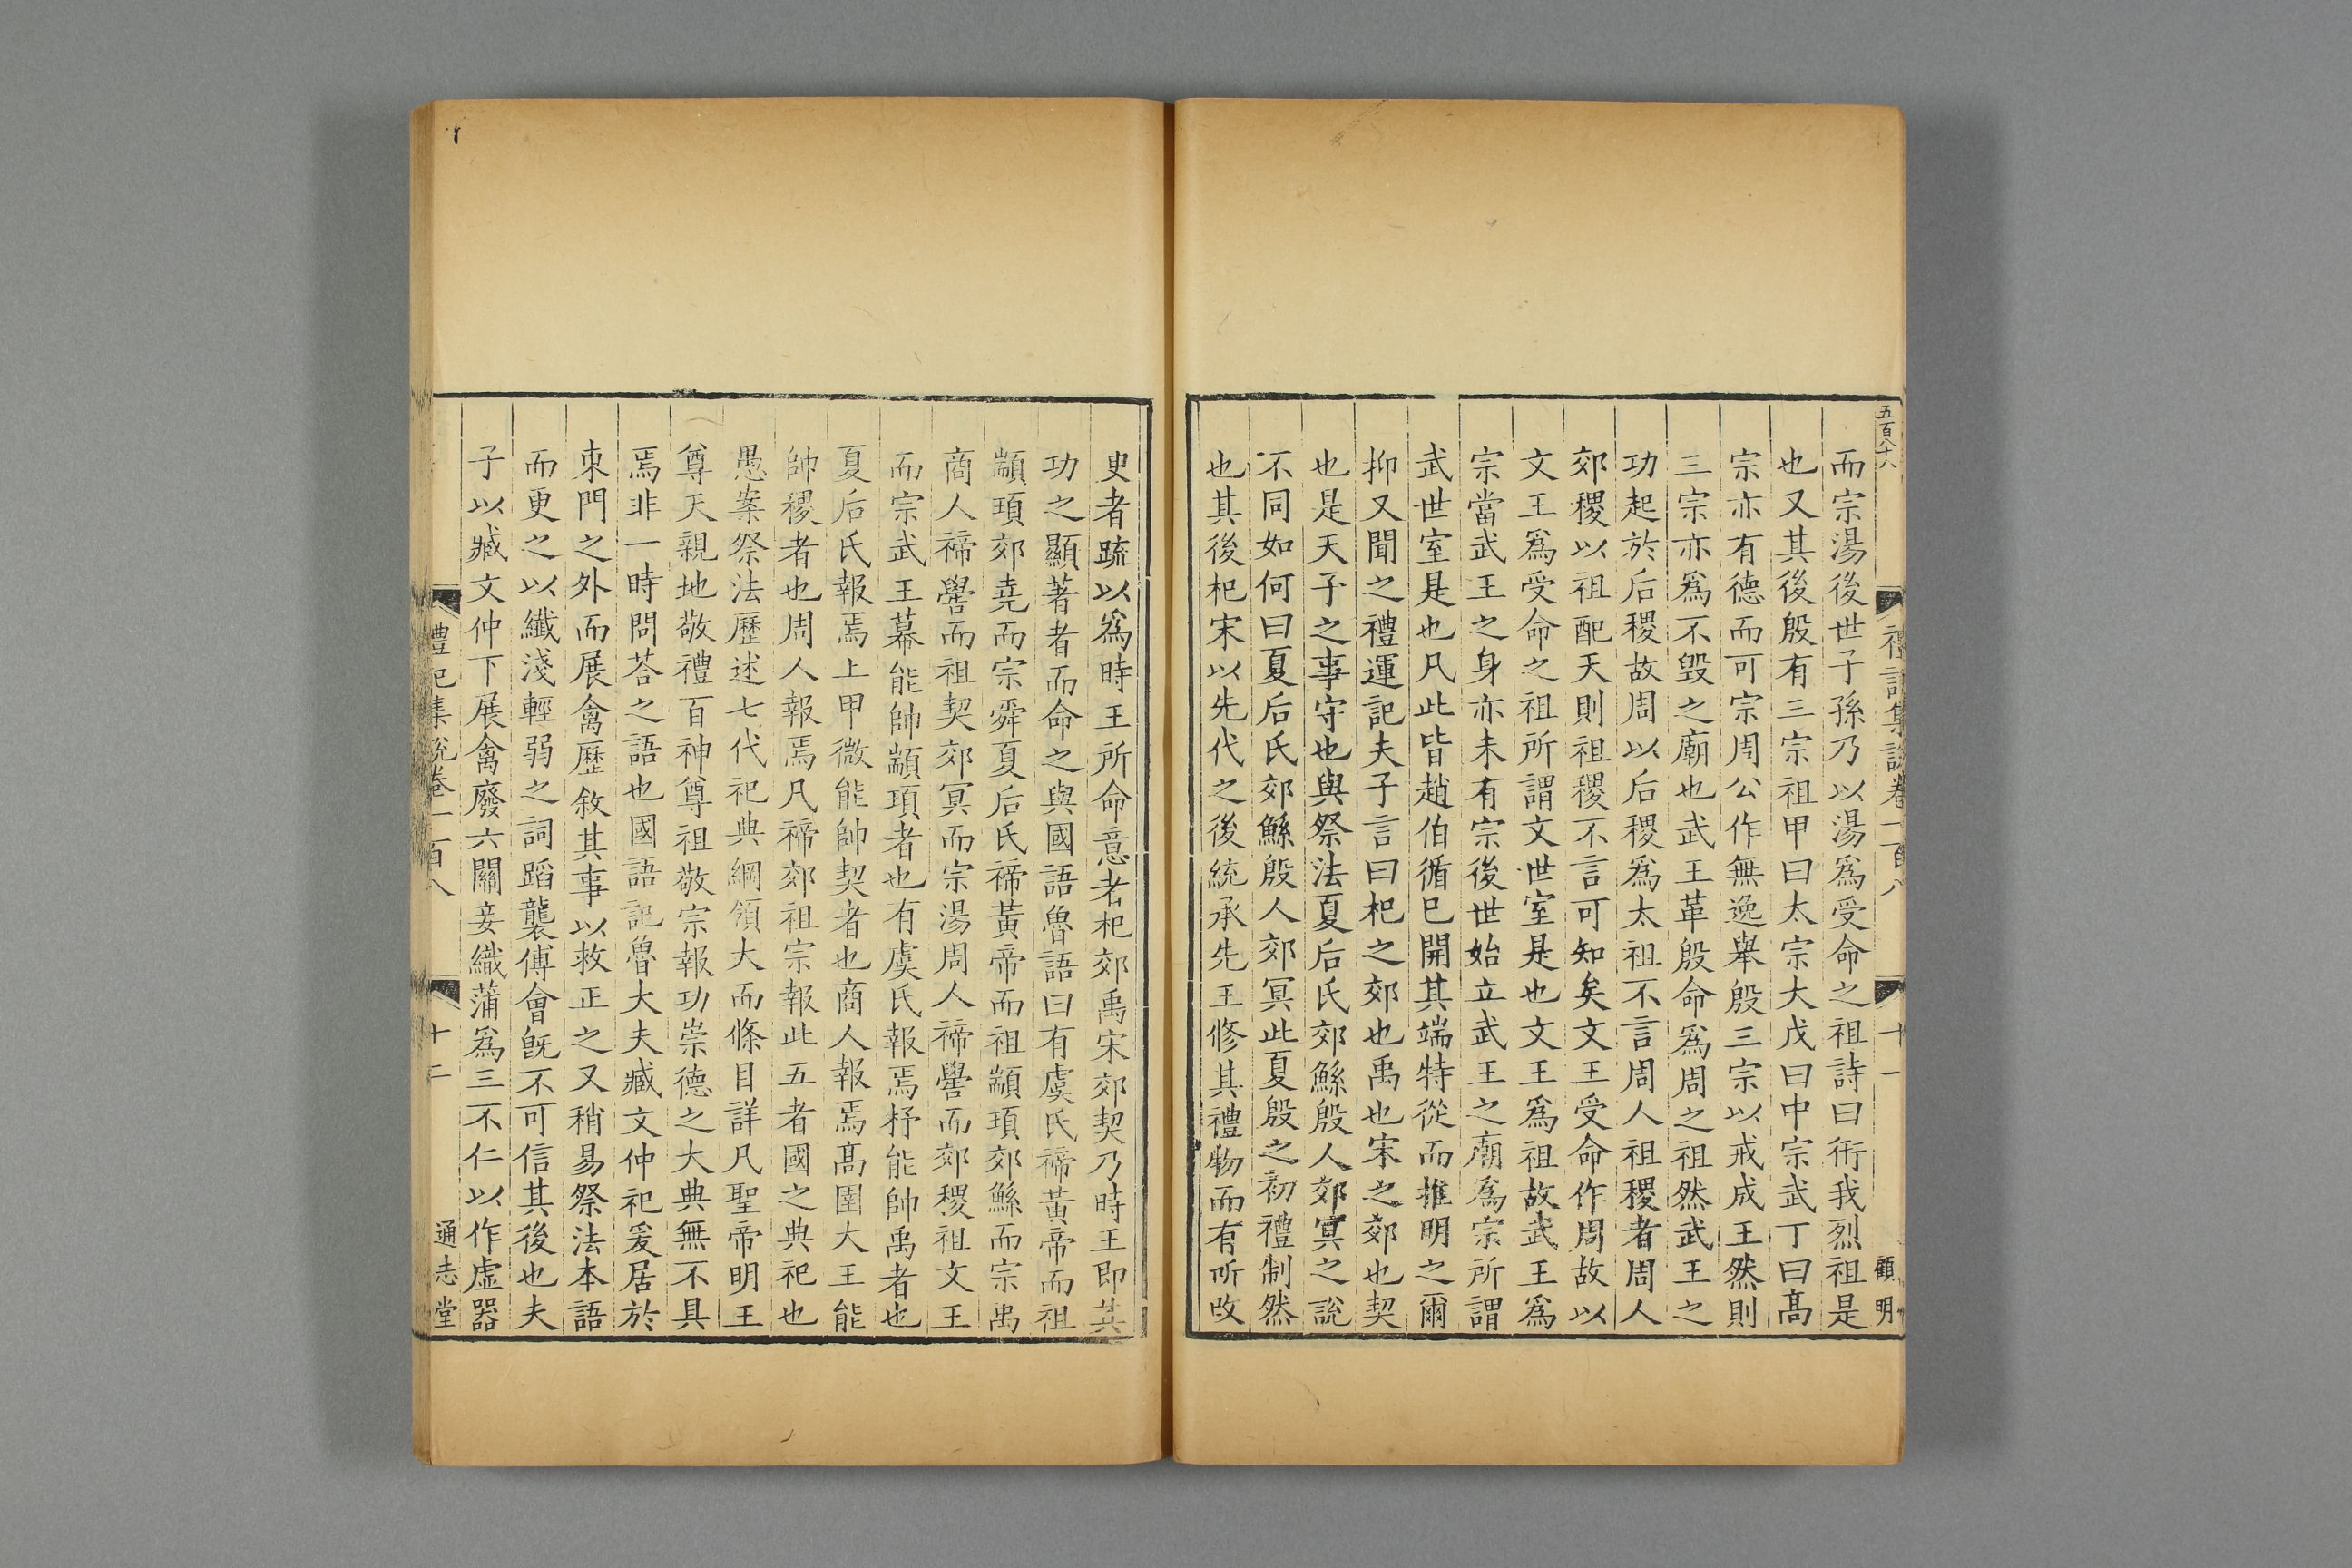 五百八十八
禮記集說卷一百八
十一
顧明
而宗湯後世子孫乃以湯爲受命之祖詩曰衎我烈祖是
也又其後殷有三宗祖甲曰太宗大戊曰中宗武丁曰髙
宗亦有德而可宗周公作無逸舉殷三宗以戒成王然則
三宗亦爲不毀之廟也武王革殷命爲周之祖然武王之
功起於后稷故周以后稷爲太祖不言周人祖稷者周人
郊稷以祖配天則祖稷不言可知矣文王受命作周故以
文王爲受命之祖所謂文世室是也文王爲祖故武王爲
宗當武王之身亦未有宗後世始立武王之廟爲宗所謂
武世室是也凡此皆趙伯循巳開其端特從而推明之爾
抑又聞之禮運記夫子言曰杞之郊也禹也宋之郊也契
也是天子之事守也與祭法夏后氏郊鯀殷人郊冥之說
不同如何曰夏后氏郊鯀殷人郊冥此夏殷之初禮制然
也其後杞宋以先代之後統承先王修其禮物而有所改
史者疏以爲時王所命意者杞郊禹宋郊契乃時王即其
功之顯著者而命之與國語魯語曰有虞氏禘黃帝而祖
顓頊郊堯而宗舜夏后氏禘黃帝而祖顓頊郊鯀而宗禹
商人禘嚳而祖契郊冥而宗湯周人禘嚳而郊稷祖文王
而宗武王幕能帥顓頊者也有虞氏報焉杼能帥禹者也
夏后氏報焉上甲微能帥契者也商人報焉髙圉大王能
帥稷者也周人報焉凡禘郊祖宗報此五者國之典祀也
愚案祭法歷述七代祀典綱領大而條目詳凡聖帝明王
尊天親地敬禮百神尊祖敬宗報功崇德之大典無不具
焉非一時問荅之語也國語記魯大夫臧文仲祀爰居於
東門之外而展禽歷敘其事以救正之又稍易祭法本語
而更之以纖淺輕弱之詞蹈襲傅會旣不可信其後也夫
子以臧文仲下展禽廢六關妾織蒲爲三不仁以作虛器
禮記集說卷一百八
十二
通志堂